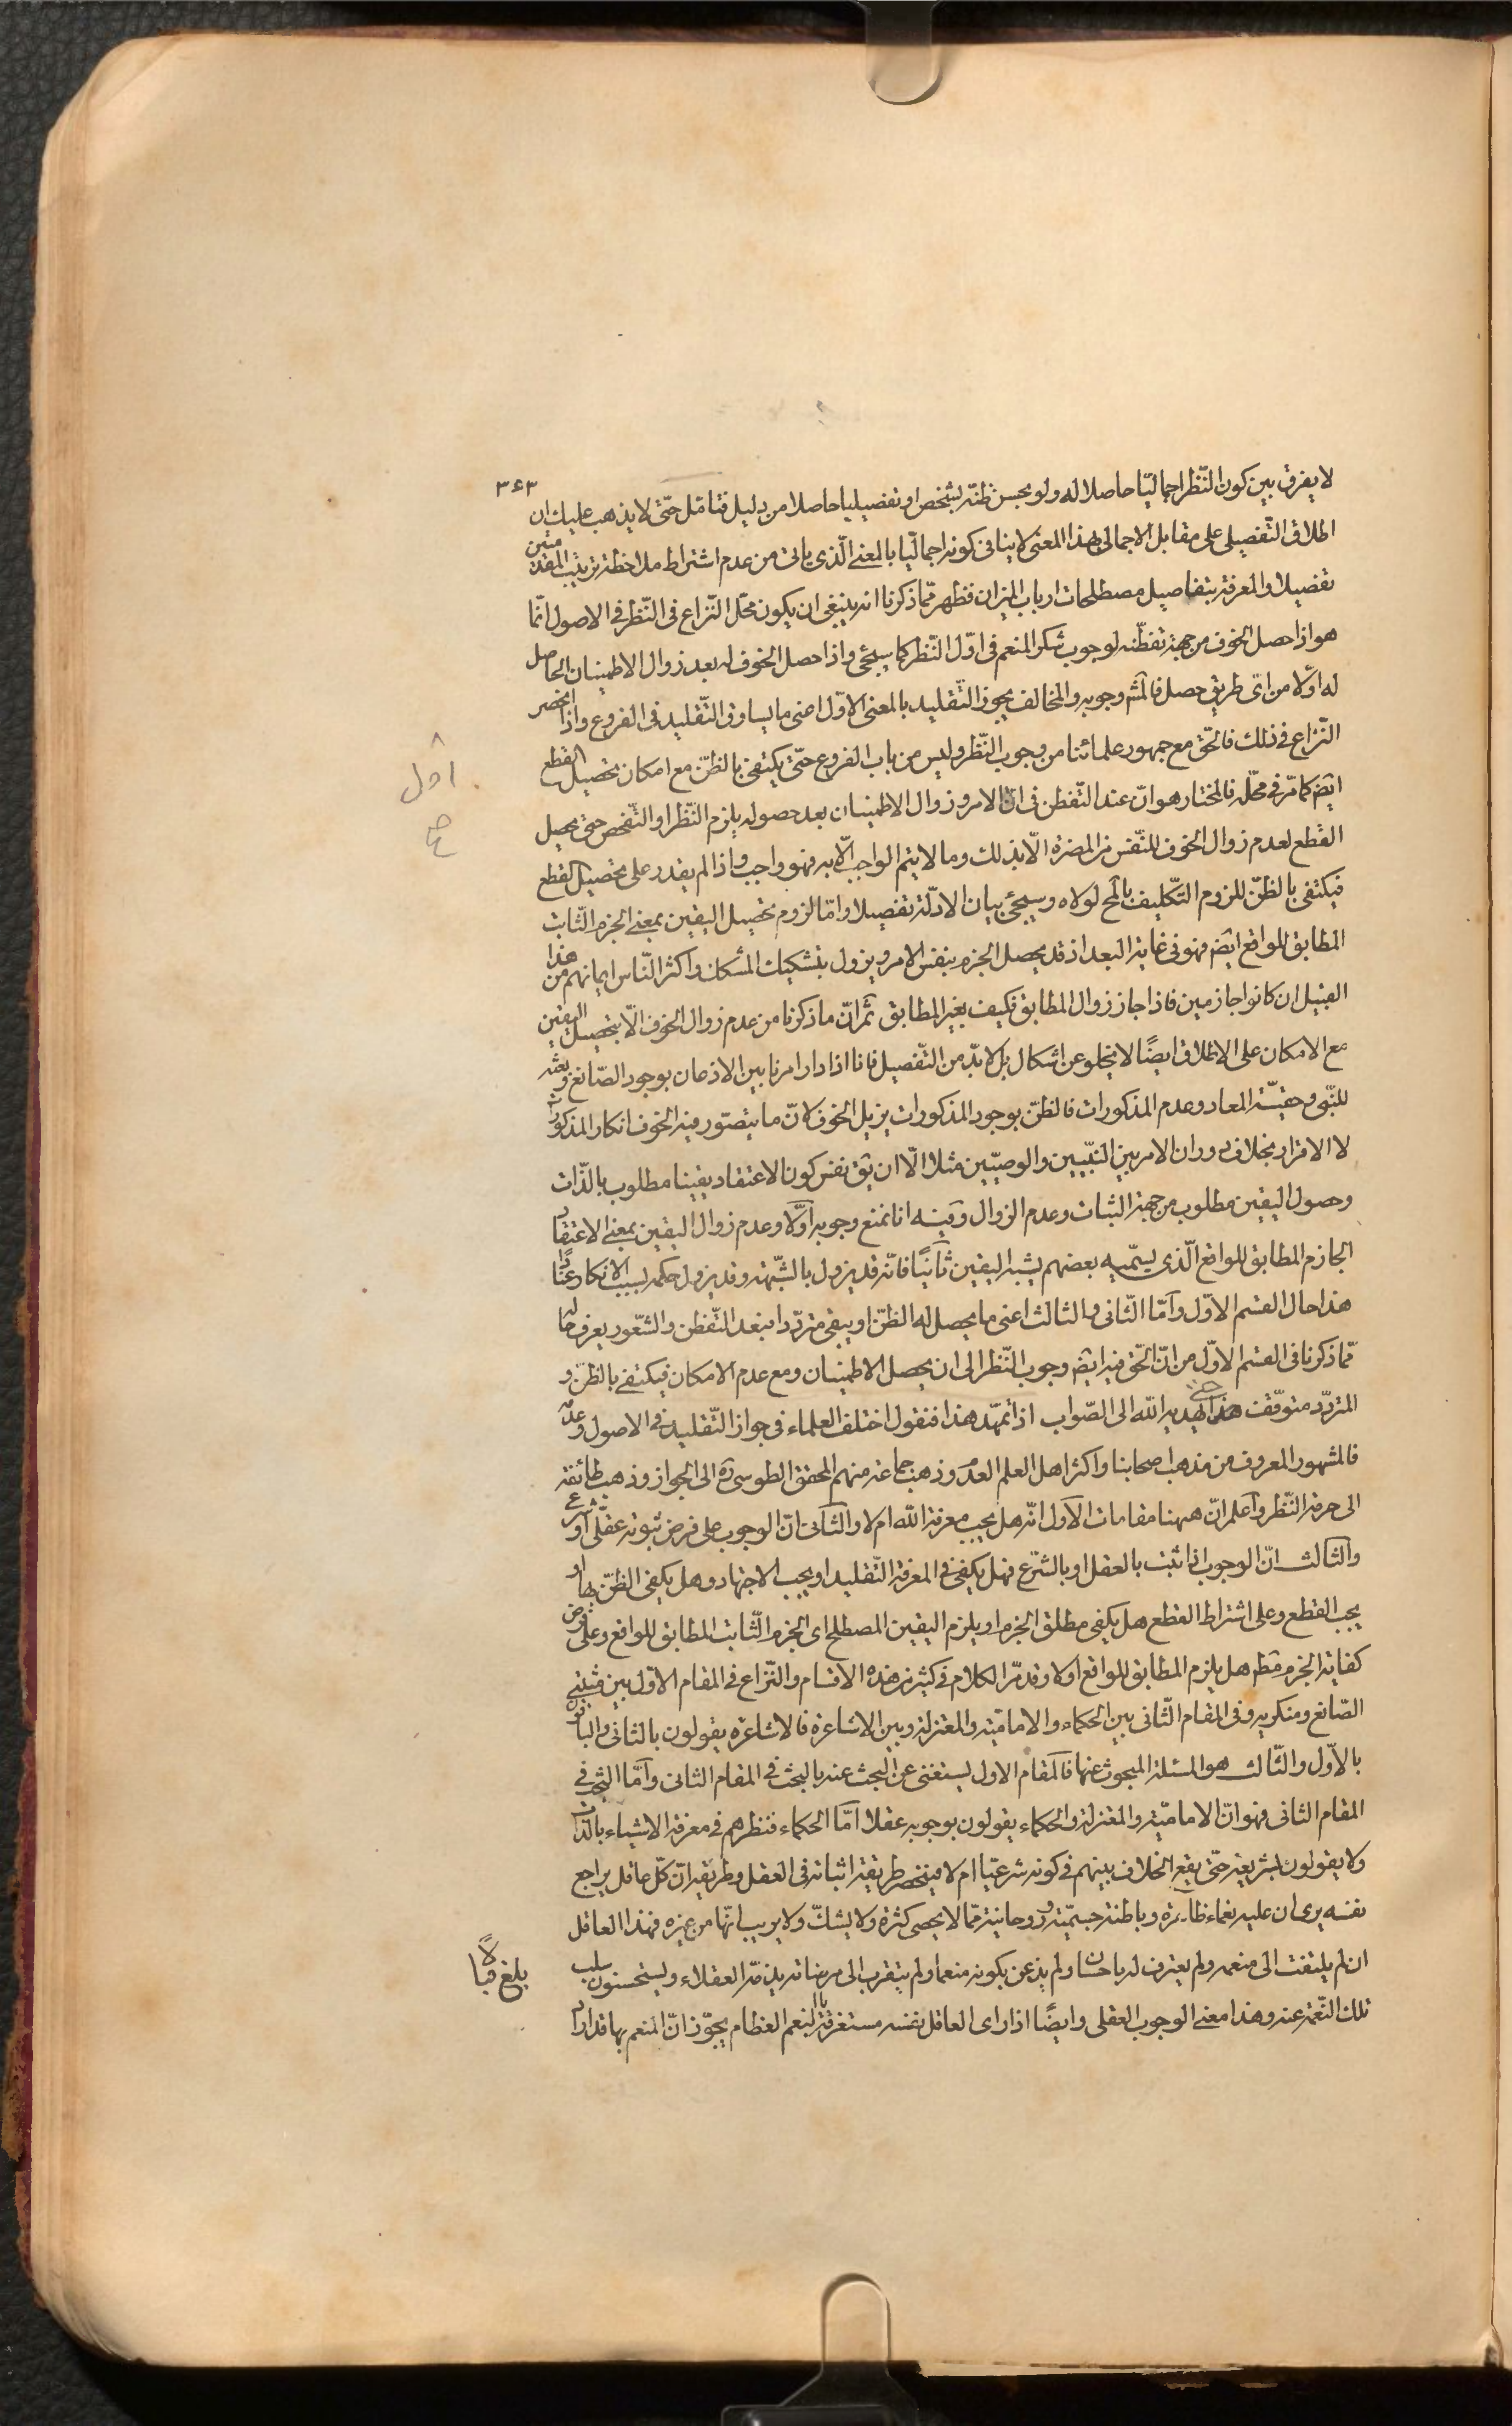 ٣٤٣
لا يفرق بين كون النّظر اجماليّا حاصلا له ولو بحسن ظنّه بشخص او تفصيليا حاصلا من دليل فتامّل حتّى لا يذهب عليك ان
اطلاق التّفصيلى على مقابل الاجمالى بهذا المعنى لا ينافى كونه اجماليّا بالمعنى الّذى ياتى من عدم اشتراط ملاحظة ترتيب المقدمتين
تفصيلا والمعرفة بتفاصيل مصطلحات ارباب الميزان فظهر ممّا ذكرنا انه ينبغى ان يكون محلّ النّزاع فى النّظر فى الاصول انّما
هو اذا حصل الخوف من جهة تفطّنه لوجوب شكر المنعم فى اوّل النّظر كما سيجئ واذا حصل الخوف له بعد زوال الاطمينان الحاصل
له اوّلا من اىّ طريق حصل فالمش وجوبه والمخالف يجوز التّقليد بالمعنى الاوّل اعنى ما يساوق التّقليد فى الفروع واذا انحصر
النّزاع فى ذلك فالحقّ مع جمهور علمائنا من وجوب النّظر وليس من باب الفروع حتّى يكتفى بالظنّ مع امكان تحصيل القطع
ايض كما مرّ فى محلّه فالمختار هو انّ عند التّفطن فى اوّل الامر وزوال الاطمينان بعد حصوله يلزم النّظر او التّفحص حتى يحصل
القطع لعدم زوال الخوف للنّفس من المضرة الّا بذلك وما لا يتم الواجب الّا به فهو واجب واذا لم يقدر على تحصيل القطع
فيكتفى بالظنّ للزوم التّكليف بالمح لولاه وسيجئ بيان الادلّة تفصيلا وامّا لزوم تحصيل اليقين بمعنى الجزم الثّابت
المطابق للواقع ايض فهو فى غاية البعد اذ قد يحصل الجزم بنفس الامر ويزول بتشكيك المشكك واكثر النّاس ايمانهم من هذا
القبيل ان كانوا جازمين فاذا جاز زوال المطابق فكيف بغير المطابق ثمّ انّ ما ذكرنا من عدم زوال الخوف الّا بتحصيل اليقين
مع الامكان على الاطلاق ايضًا لا يخلو عن اشكال بل لا بدّ من التّفصيل فانا اذا دار امرنا بين الاذعان بوجود الصّانع وبعثه
للنّبى وحقيّة المعاد وعدم المذكورات فالظنّ بوجود المذكورات يزيل الخوف لانّ ما يتصوّر فيه الخوف انكار المذكورات
لا الاقرار بخلاف دوران الامر بين النّبيّين والوصيّين مثلا الّا ان يق نفس كون الاعتقاد يقينا مطلوب بالذّات
وحصول اليقين مطلوب من جهة الثبات وعدم الزوال وفيه انا نمنع وجوبه اوّلا وعدم زوال اليقين بمعنى الاعتقاد
الجازم المطابق للواقع الّذى يسمّيه بعضهم بشبه اليقين ثانيًا فانّه قد يزول بالشّبهة وقد يزول حكمه بسبب الانكار عنادًا
هذا حال القسم الاوّل وامّا الثّانى والثالث اعنى ما يحصل له الظنّ او يبقى متردّدا فبعد التّفطن والشّعور يعرف حاله
ممّا ذكرنا فى القسم الاوّل من انّ الحقّ فيه ايض وجوب النّظر الى ان يحصل الاطمينان ومع عدم الامكان فيكتفى بالظنّ و
المتردّد متوقّف حتى يهديه الله الى الصّواب اذا تمهّد هذا فنقول اختلف العلماء فى جواز التّقليد فى الاصول وعدمه
فالمشهور المعروف من مذهب اصحابنا واكثر اهل العلم العدم وذهب جماعة منهم المحقق الطوسى ره الى الجواز وذهب طائفة
الى حرمة النّظر واعلم انّ ههنا مقامات الاوّل انّه هل يجب معرفة الله ام لا والثّانى انّ الوجوب على فرض ثبوته عقلى او شرعى
والثالث انّ الوجوب اذا ثبت بالعقل او بالشّرع فهل يكفى فى المعرفة التّقليد او يجب الاجتهاد وهل يكفى الظنّ بها او
يجب القطع وعلى اشتراط القطع هل يكفى مطلق الجزم او يلزم اليقين المصطلح اى الجزم الثّابت المطابق للواقع وعلى فرض
كفاية الجزم مط هل يلزم المطابق للواقع اولا وقد مرّ الكلام فى كثير من هذه الاقسام والنّزاع فى المقام الاوّل بين مثبتى
الصّانع ومنكريه وفى المقام الثّانى بين الحكماء والاماميّة والمعتزلة وبين الاشاعرة فالاشاعرة يقولون بالثانى والباقون
بالاوّل والثّالث هو المسئلة المبحوث عنها فالمقام الاول يستغنى عن البحث عنه بالبحث فى المقام الثانى وامّا الشّرح فى
المقام الثانى فهو انّ الاماميّة والمعتزلة والحكماء يقولون بوجوبه عقلا امّا الحكماء فنظرهم فى معرفة الاشياء بالذّات
ولا يقولون بشريعة حتّى يقع الخلاف بينهم فى كونه شرعيّا ام لا فينحصر طريقة اثباته فى العقل وطريقه انّ كلّ عاقل يراجع
نفسه يرى ان عليه نعماء ظاهرة وباطنة جسميّة وروحانية ممّا لا يحصى كثرة ولا يشكّ ولا يريب انّها من غيره فهذا العاقل
ان لم يلتفت الى منعمه ولم يعترف له باحسان ولم يذعن بكونه منعما ولم يتقرب الى مرضاته يذمّه العقلاء ويستحسنون سلب
تلك النّعمة عنه وهذا معنى الوجوب العقلى وايضًا اذا راى العاقل نفسه مستغرقة بالنعم العظام يجوّز انّ المنعم بها قد اراد
اول
بلغ قبالًا